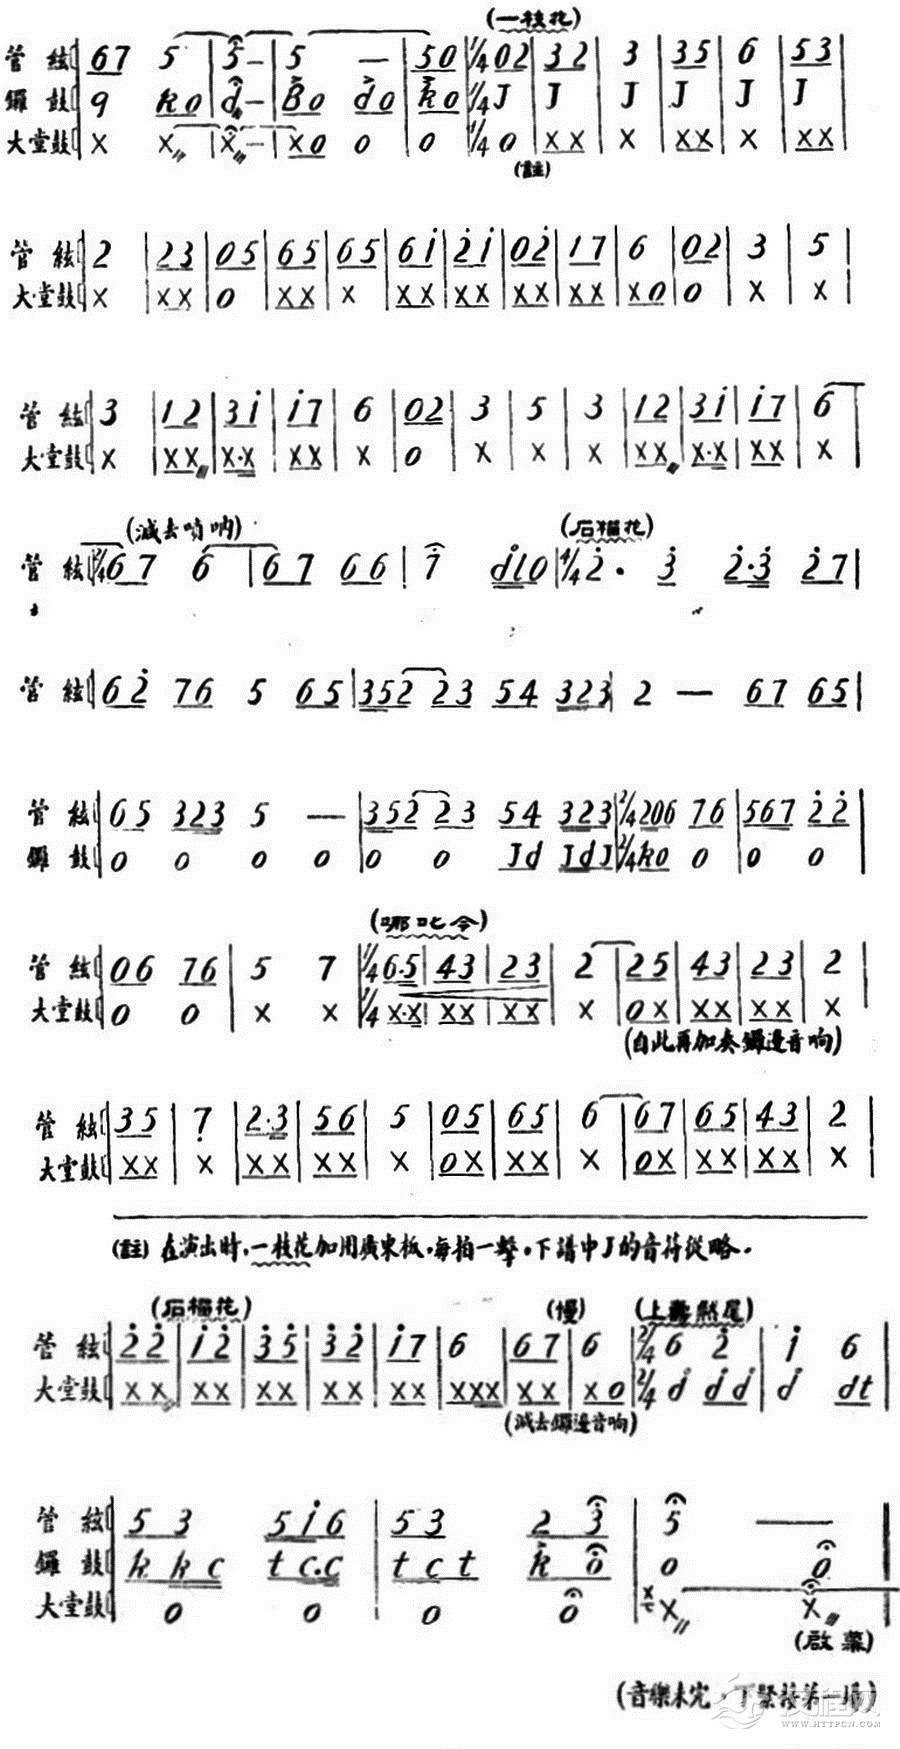 (一枝花)
管絃 67 5 | 5 - | 5 — | 50 | 1/4 02 | 32 | 3 | 35 | 6 | 53 |
鑼鼓 9 ko | d - | Bo do | ko | 1/4 J | J | J | J | J | J |
大堂鼓 X X | X - | XO O | O | 1/4 O | XX | X | XX | X | XX |
(註)
管絃 2 | 23 | 05 | 65 | 65 | 6i | 2i | 02 | 17 | 6 | 02 | 3 | 5 |
大堂鼓 X | XX | O | XX | X | XX | XX | XX | XX | XO | O | X | X |
管絃 3 | 12 | 3i | i7 | 6 | 02 | 3 | 5 | 3 | 12 | 3i | i7 | 6
大堂鼓 X | XX | X·X | XX | X | O | X | X | X | XX | X·X | XX | X |
(減去唢吶) (石榴花)
管絃 2/4 67 6 | 67 66 | 7 di0 | 4/4 2· 3 2·3 27 |
管絃 62 76 5 65 | 352 23 54 323 | 2 — 67 65 |
管絃 65 323 5 — | 352 23 54 323 | 2/4 206 76 | 567 22 |
鑼鼓 O O O O | O O Jd JdJ | 2/4 ko O | O O |
(哪吒令)
管絃 06 76 | 5 7 | 1/4 6·5 | 43 | 23 | 2 | 25 | 43 | 23 | 2 |
大堂鼓 O O | X X | 1/4 X·X | XX | XX | X | OX | XX | XX | X |
(自此再加奏鑼邊音响)
管絃 35 | 7 | 2·3 | 56 | 5 | 05 | 65 | 6 | 67 | 65 | 43 | 2 |
大堂鼓 XX | X | XX | XX | X | OX | XX | X | OX | XX | XX | X |
(註) 在演出时,一枝花加用廣東板,每拍一擊,下譜中J的音符從略.
(石榴花) (慢) (上壽煞尾)
管絃 22 | i2 | 35 | 32 | i7 | 6 | 67 | 6 | 2/4 6 2 | i 6
大堂鼓 XX | XX | XX | XX | XX | XXX | XX | XO | 2/4 d dd | d dt
(減去鑼邊音响)
管絃 53 5i6 | 53 23 | 5 —
鑼鼓 kkc tc.c | tct ko | O O
大堂鼓 O O | O O | X X
(啟幕)
(音樂未完·下緊接第一場)
WWW.HTTPCN.COM